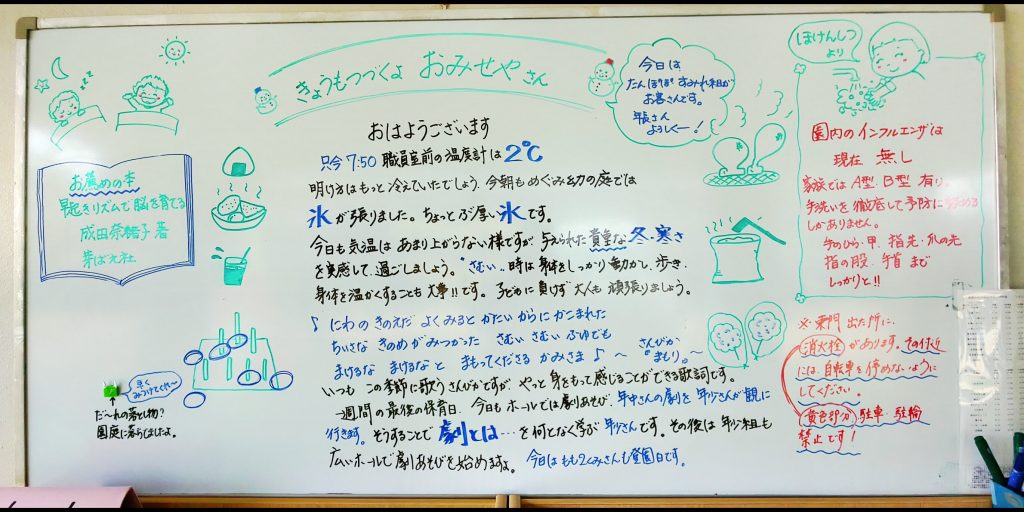 きょうもつづくよ おみせやさん
今日は
たんぽぽ すみれ組が
お客さんです。
年長さん
よろしくー!
ほけんしつ
より
zzz
おはようございます
只今7:50 職員室前の温度計は2℃
明け方はもっと冷えていたでしょう。今朝もめぐみ幼の庭では
氷が張りました。ちょっとぶ厚い氷です。
今日も気温はあまり上がらない様ですが 与えられた貴重な冬・寒さ
を実感して、過ごしましょう。"さむい"時は身体をしっかり動かし、歩き、
身体を温かくすることも大事!!です。子どもに負けず大人も頑張りましょう。
♪ にわの きのえだ よくみると かたい からに かこまれた
ちいさな きのめが みつかった さむい さむい ふゆでも
まけるな まけるなと まもってくださる かみさま ♪ 〜 さんびか
"まもり"〜
いつも この季節に歌う さんびかですが やっと身をもって感じることができる歌詞です。
一週間の最後の保育日、今日もホールでは劇あそび、年中さんの劇を年少さんが観に
行きます。そうすることで 劇とは…を何となく学ぶ年少さんです。その後は年少組も
広いホールで劇あそびを始めますよ。 今日はももぐみさんも登園日です。
お薦めの本
早起きリズムで脳を育てる
成田奈緒子 著
芽ばえ社
早く
みつけてくれ〜
だ〜れの落とし物?
園庭に落ちてましたよ。
園内のインフルエンザは
現在 無し
家族ではA型、B型 有り。
手洗いを徹底して予防に努める
しかありません。
手のひら・甲、指先・爪の先
指の股、手首 まで
しっかりと!!
※ 東門 出た所に、
消火栓があります。その付近
には、自転車を停めないように
してください。
黄色部分 駐車・駐輪
禁止です!